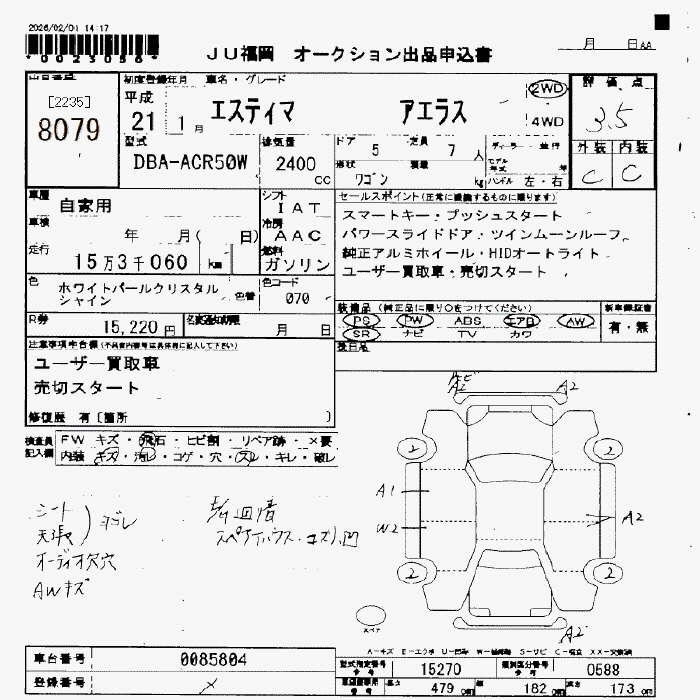 2026/02/01 14:17
*0023056*
JU福岡 オークション出品申込書
月 日 AA
出品番号 [2235] 8079
初度登録年月 平成 21 1月
車名・グレード エスティマ アエラス
2WD
4WD
評価点 3.5
外装 内装
C C
型式 DBA-ACR50W
排気量 2400 cc
ドア 5 定員 7 人
形状 ワゴン 積載 kg
ディーラー・並行
モデル年式 年
ハンドル 左・右
車歴 自家用
シフト IAT
車検 年 月( 日)
冷房 AAC
走行 15万3千060 km
燃料 ガソリン
色 ホワイトパールクリスタルシャイン 色替
色コード 070
R券 15,220円
名義変更期限 月 日
セールスポイント(正常に機能するものに限ります)
スマートキー・プッシュスタート
パワースライドドア・ツインムーンルーフ
純正アルミホイール・HIDオートライト
ユーザー買取車・売切スタート
装備品 (純正品に限り○をつけてください)
PS PW ABS エアB AW
SR ナビ TV カワ
新車保証書
有・無
後日品
注意事項申告欄
ユーザー買取車
売切スタート
修復歴 有 〔箇所 〕
検査員記入欄
FW キズ・飛石・ヒビ割・リペア跡・×要
内装 キズ・汚レ・コゲ・穴・スレ・キレ・破レ
シート
天張 ヨゴレ
オーディオ穴穴
AWキズ
A2
A2
2
2
A1
W2
A2
2
2
A2
スペア
A-キズ E-エクボ U-凹み W-補修跡 S-サビ C-腐食 XX-交換済
車台番号 0085804
登録番号
型式指定番号 15270
類別区分番号 0588
長さ 479 cm 幅 182 cm 高さ 173 cm